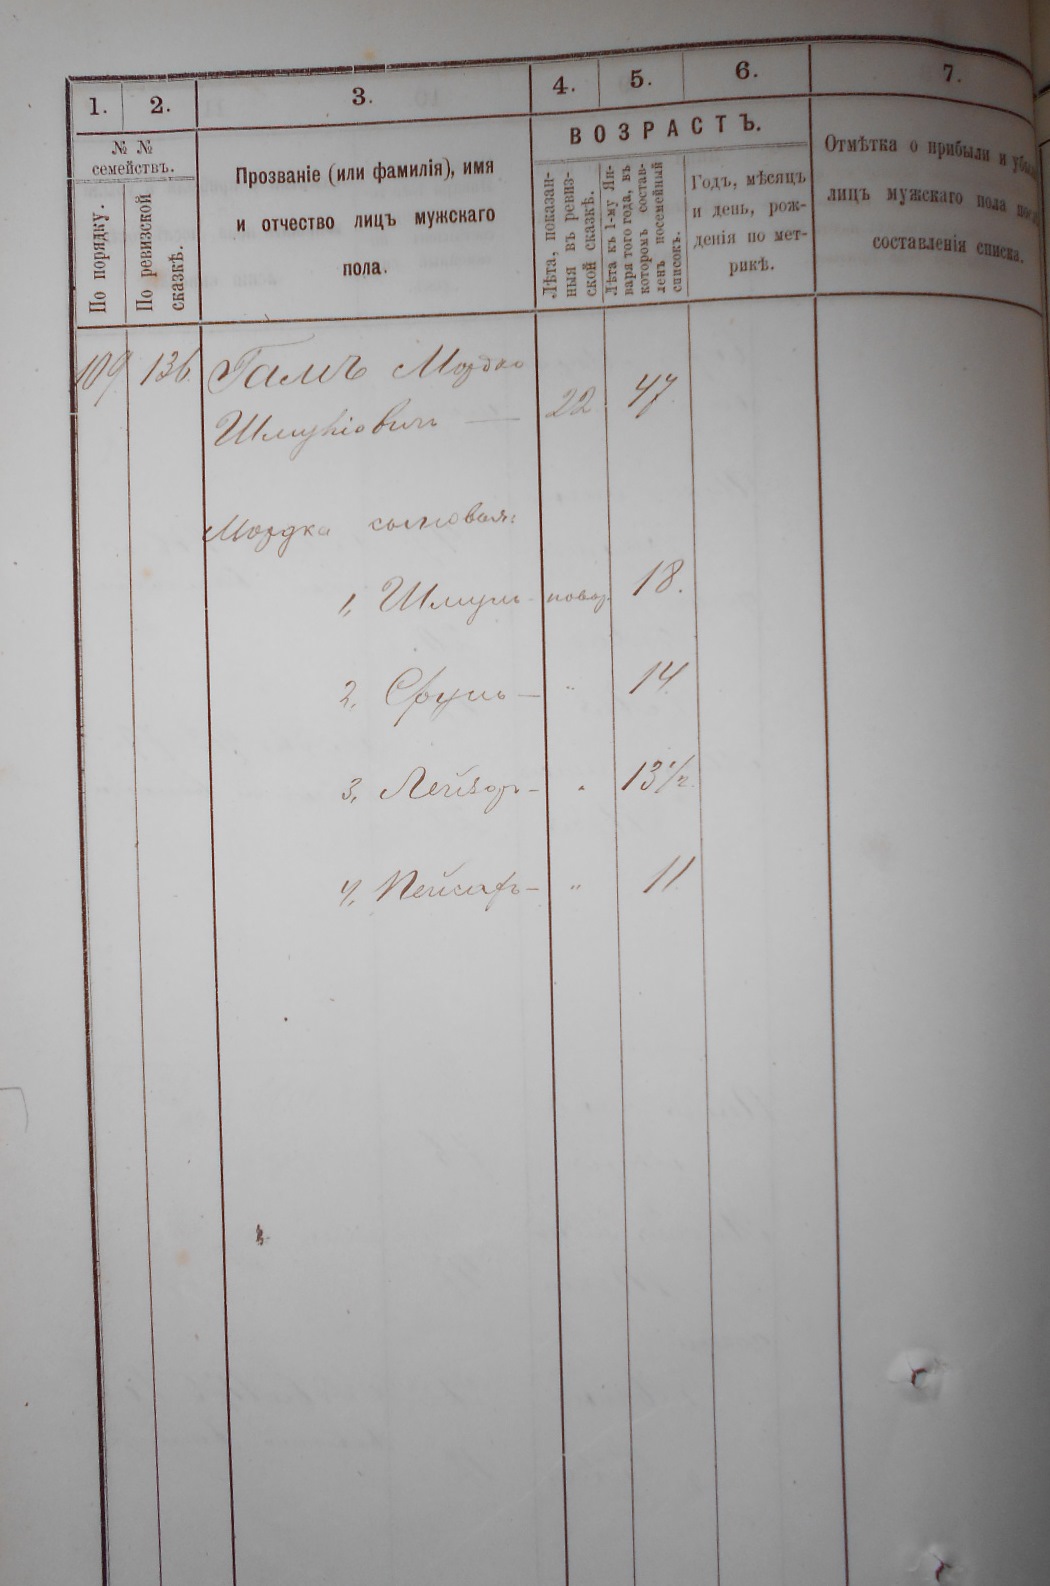 1. 2. 3. 4. 5. 6. 7.
№ № семействъ.
По порядку.
По ревизской сказкѣ.
Прозваніе (или фамилія), имя
и отчество лицъ мужскаго
пола.
ВОЗРАСТЪ.
Лѣта, показан-
ныя въ ревиз-
ской сказкѣ.
Лѣта къ 1-му Ян-
варя того года, въ
которомъ состав-
ленъ посемейный
списокъ.
Годъ, мѣсяцъ
и день, рож-
денія по мет-
рикѣ.
Отмѣтка о прибыли и
лицъ мужскаго пола
составленія списка.
109 136 Гамъ Мордко
Шмуйловичъ 22 47
Мордка сыновья:
1, Шмуль - новор. 18.
2, Сруль — " 14
3, Лейзоръ - " 13 1/2
4, Пейсахъ - " 11